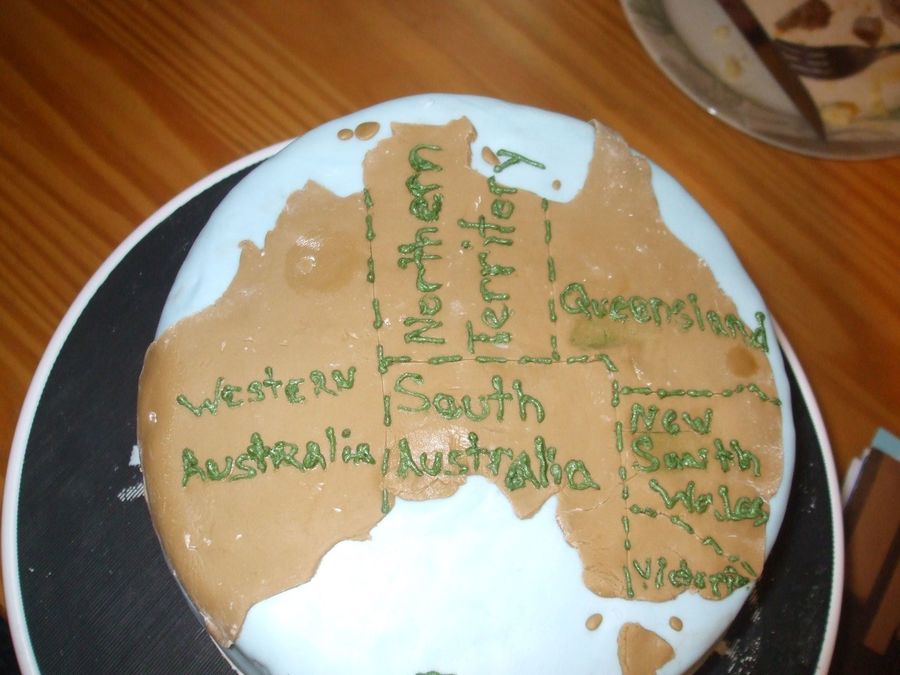 Northern
Territory
Queensland
Western
Australia
South
Australia
New
South
Wales
Victoria